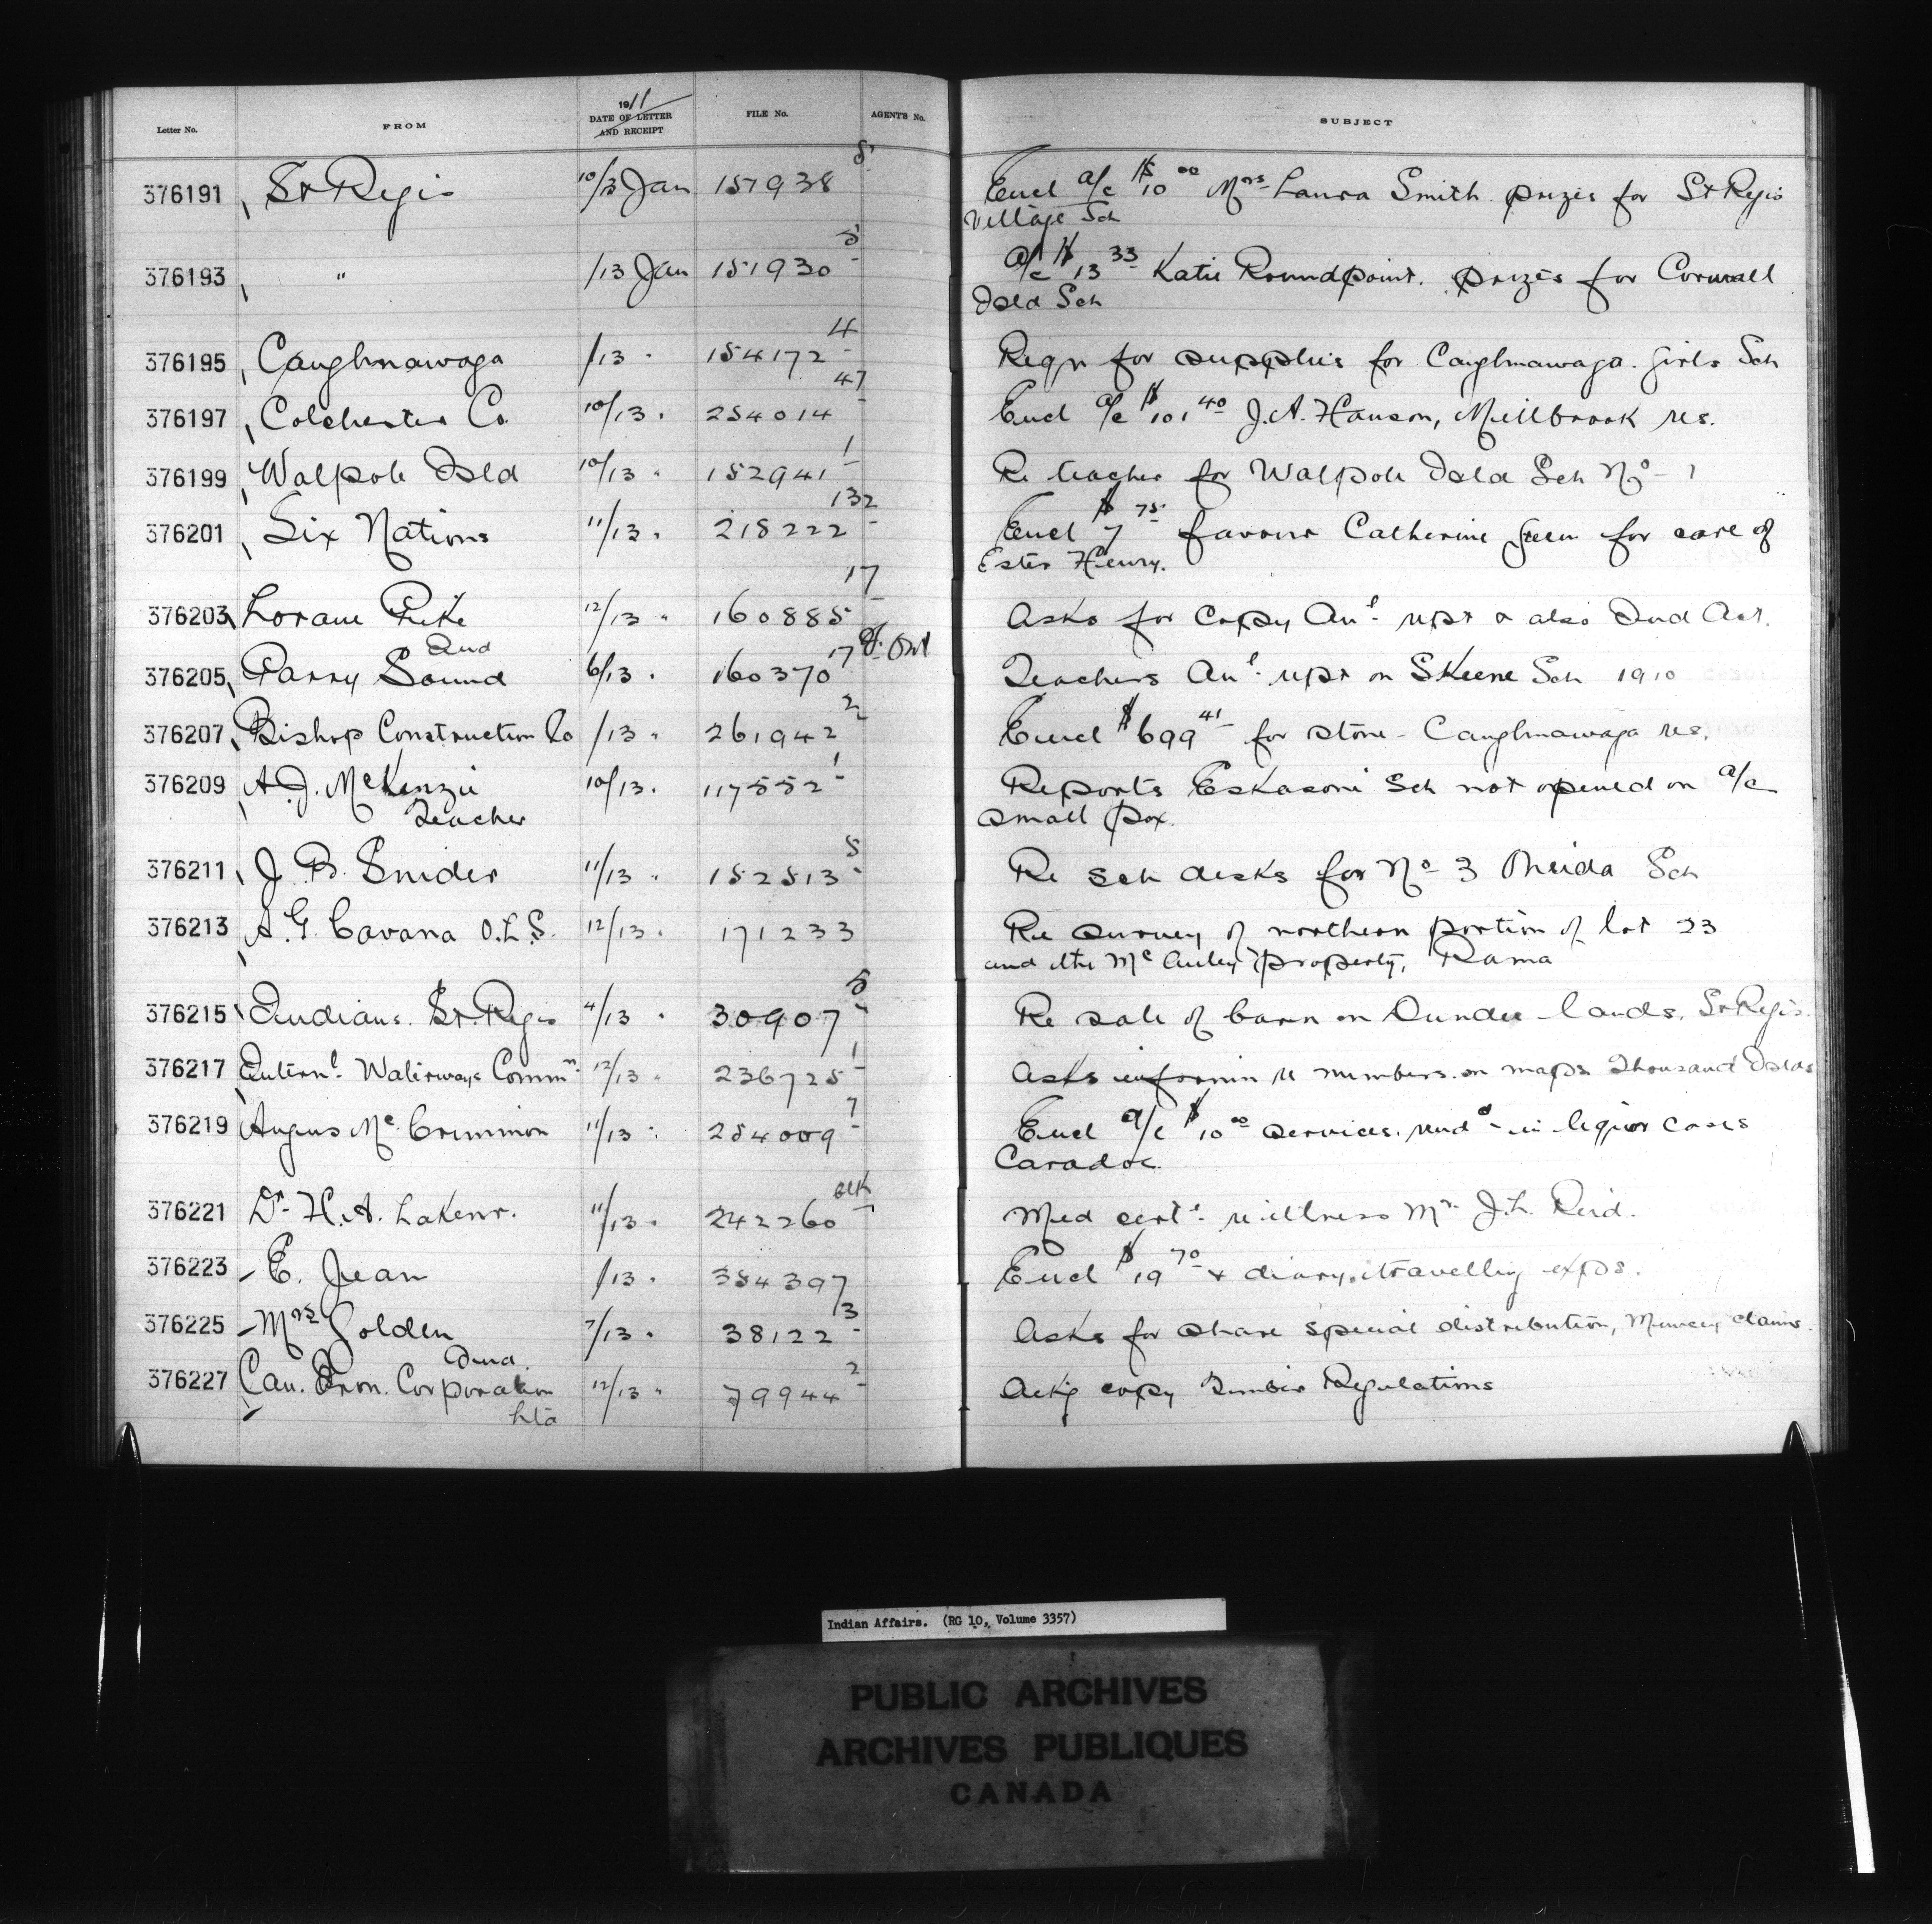 Letter No. FROM 1911 DATE OF LETTER AND RECEIPT FILE No. AGENT'S No. SUBJECT
376191 St Regis 10/13 Jan 157938-5 Encl a/c $10.00 Mrs Laura Smith prizes for St Regis
Village Sch
376193 " /13 Jan 151930-5 a/c $13.33 Katie Roundpoint. prizes for Cornwall
Isld Sch
376195 Caughnawaga /13 " 154172-4 Reqn for supplies for Caughnawaga. Girls Sch
376197 Colchester Co. 10/13 " 254014-47 Encl a/c $101.40 J.A. Hanson, Millbrook res.
376199 Walpole Isld 10/13 " 152941-1 Re teacher for Walpole Isld Sch No 1
376201 Six Nations 11/13 " 218222-132 Encl $7.75 favour Catherine Green for care of
Ester Henry.
376203 Lorane 12/13 " 160885-17 Asks for copy Anl rept & also Ind Act.
376205 Parry Sound Ind 6/13 " 160370-17 Teachers Anl rept on Skene Sch 1910
376207 Bishop Construction Co /13 " 261942-2 Encl $699.41 for stone - Caughnawaga res.
376209 A.J. McKenzie 10/13 " 117552-1 Reports Eskasoni Sch not opened on a/c
Teacher small pox.
376211 J. B. Snider 11/13 " 152513-5 Re sch desks for No 3 Oneida Sch
376213 A. G. Cavana O.L.S. 12/13 " 171233 Re survey of northern portion of lot 23
and the McCauley property, Rama
376215 Indians. St. Regis 4/13 " 30907-5 Re sale of barn on Dundee lands, St Regis.
376217 Internl. Waterways Commn 12/13 " 236725-1 Asks informn re numbers on maps Thousand Islds
376219 Angus McCrimmon 11/13 " 254009-7 Encl a/c $10.00 services rend in liquor cases
Caradoc.
376221 Dr H.A. 11/13 " 242260 Med cert re illness Mr J.L. Reid.
376223 E. Jean /13 " 354397 Encl $19.70 & diary, travelling exps.
376225 Mrs Golden 7/13 " 38122-3 Asks for share special distribution, Muncey claims.
376227 Can. Iron. Corporation 12/13 " 79944-2 Ackg copy Timber Regulations
Ltd
Indian Affairs. (RG 10, Volume 3357)
PUBLIC ARCHIVES
ARCHIVES PUBLIQUES
CANADA